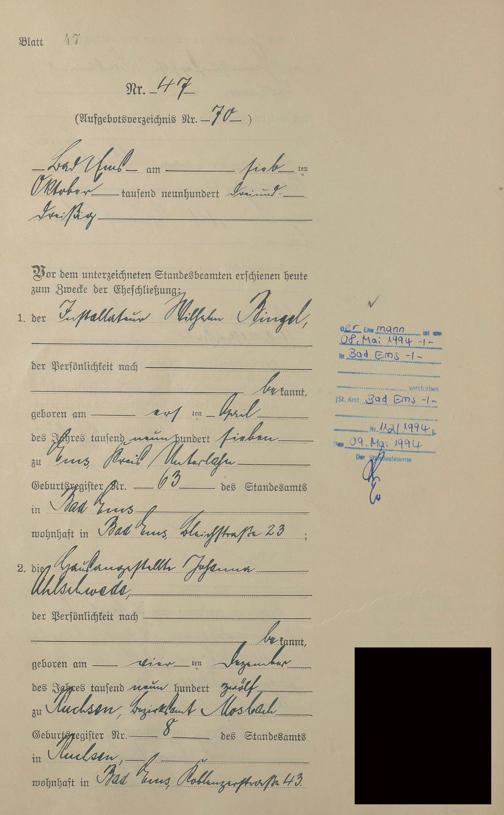 Blatt 47
Nr. 47
(Aufgebotsverzeichnis Nr. 70)
Bad Ems am sieb ten
Oktober tausend neunhundert dreiund
dreißig
Vor dem unterzeichneten Standesbeamten erschienen heute
zum Zwecke der Eheschließung:
1. der Installateur Wilhelm Ringel,
der Persönlichkeit nach
bekannt,
geboren am ers ten April
des Jahres tausend neun hundert sieben
zu Ems, Kreis Unterlahn
Geburtsregister Nr. 63 des Standesamts
in Bad Ems
wohnhaft in Bad Ems Bleichstraße 23 ;
2. die Hausangestellte Johanna
der Persönlichkeit nach
bekannt,
geboren am vier ten Dezember
des Jahres tausend neun hundert zwölf
zu Ruchsen, Bezirksamt Mosbach
Geburtsregister Nr. 8 des Standesamts
in Ruchsen,
wohnhaft in Bad Ems, Koblenzerstraße 43.
Der Ehemann ist am
08. Mai 1994 -|-
in Bad Ems -|-
verstorben
(St. Amt Bad Ems -|-
Nr. 112/1994)
Den 09. Mai 1994
Der Standesbeamte